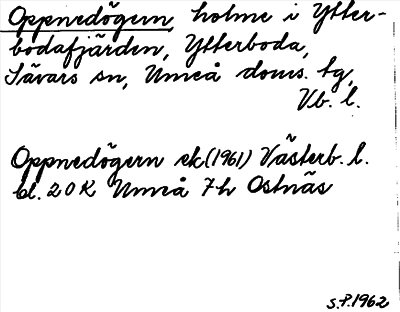 Oppnedögern, holme i Ytter-
bodafjärden, Ytterboda,
Sävars sn, Umeå doms. tg,
Vb. l.
Oppnedögern ek (1961) Västerb. l.
bl. 20 K Umeå 7h Ostnäs
S.P. 1962